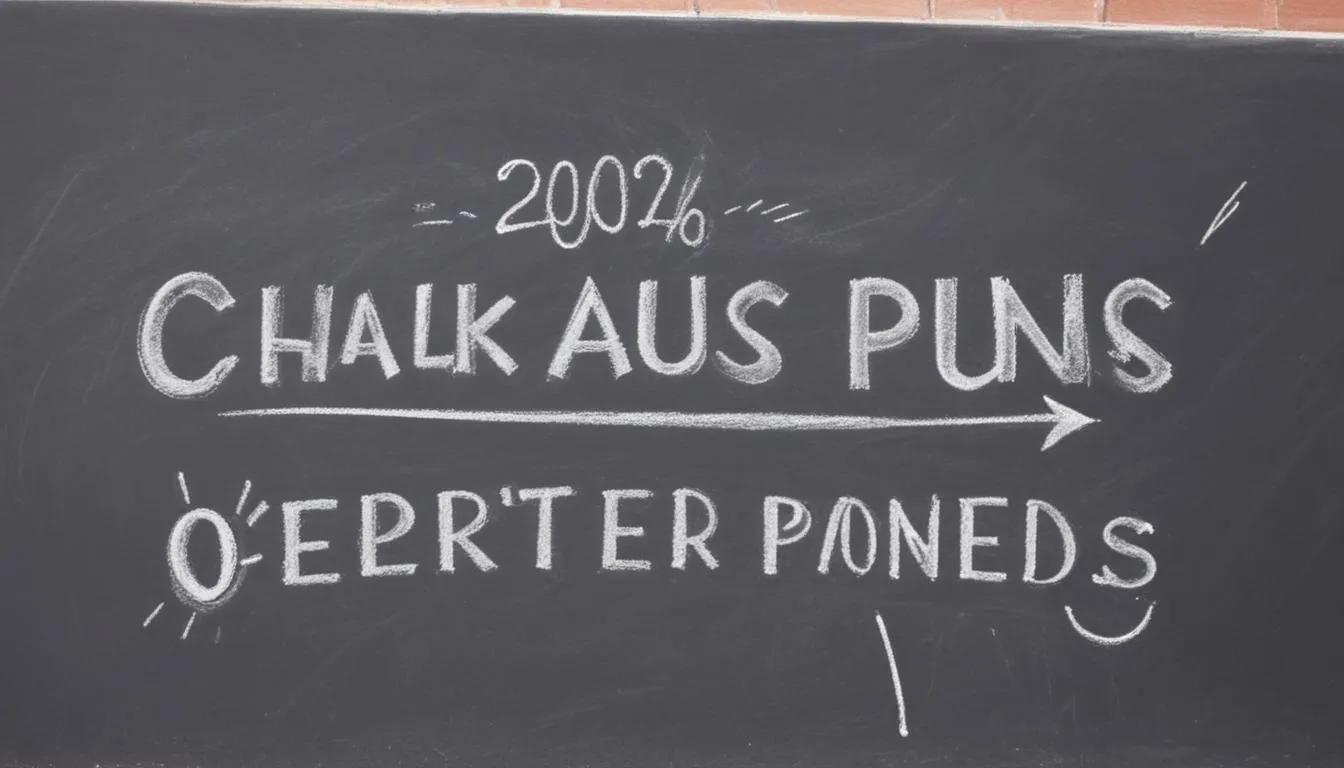 2002%
CHALK AUS PUNS
O'ERR'TER PONEDS